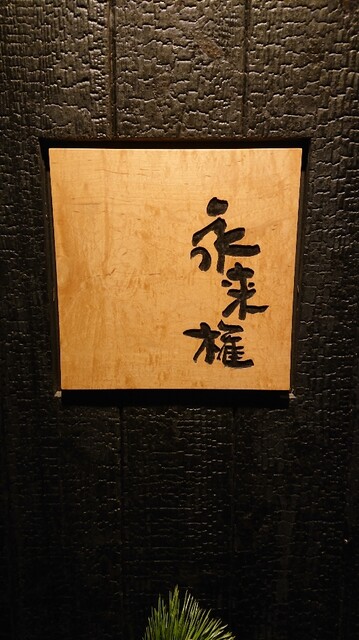 永来権